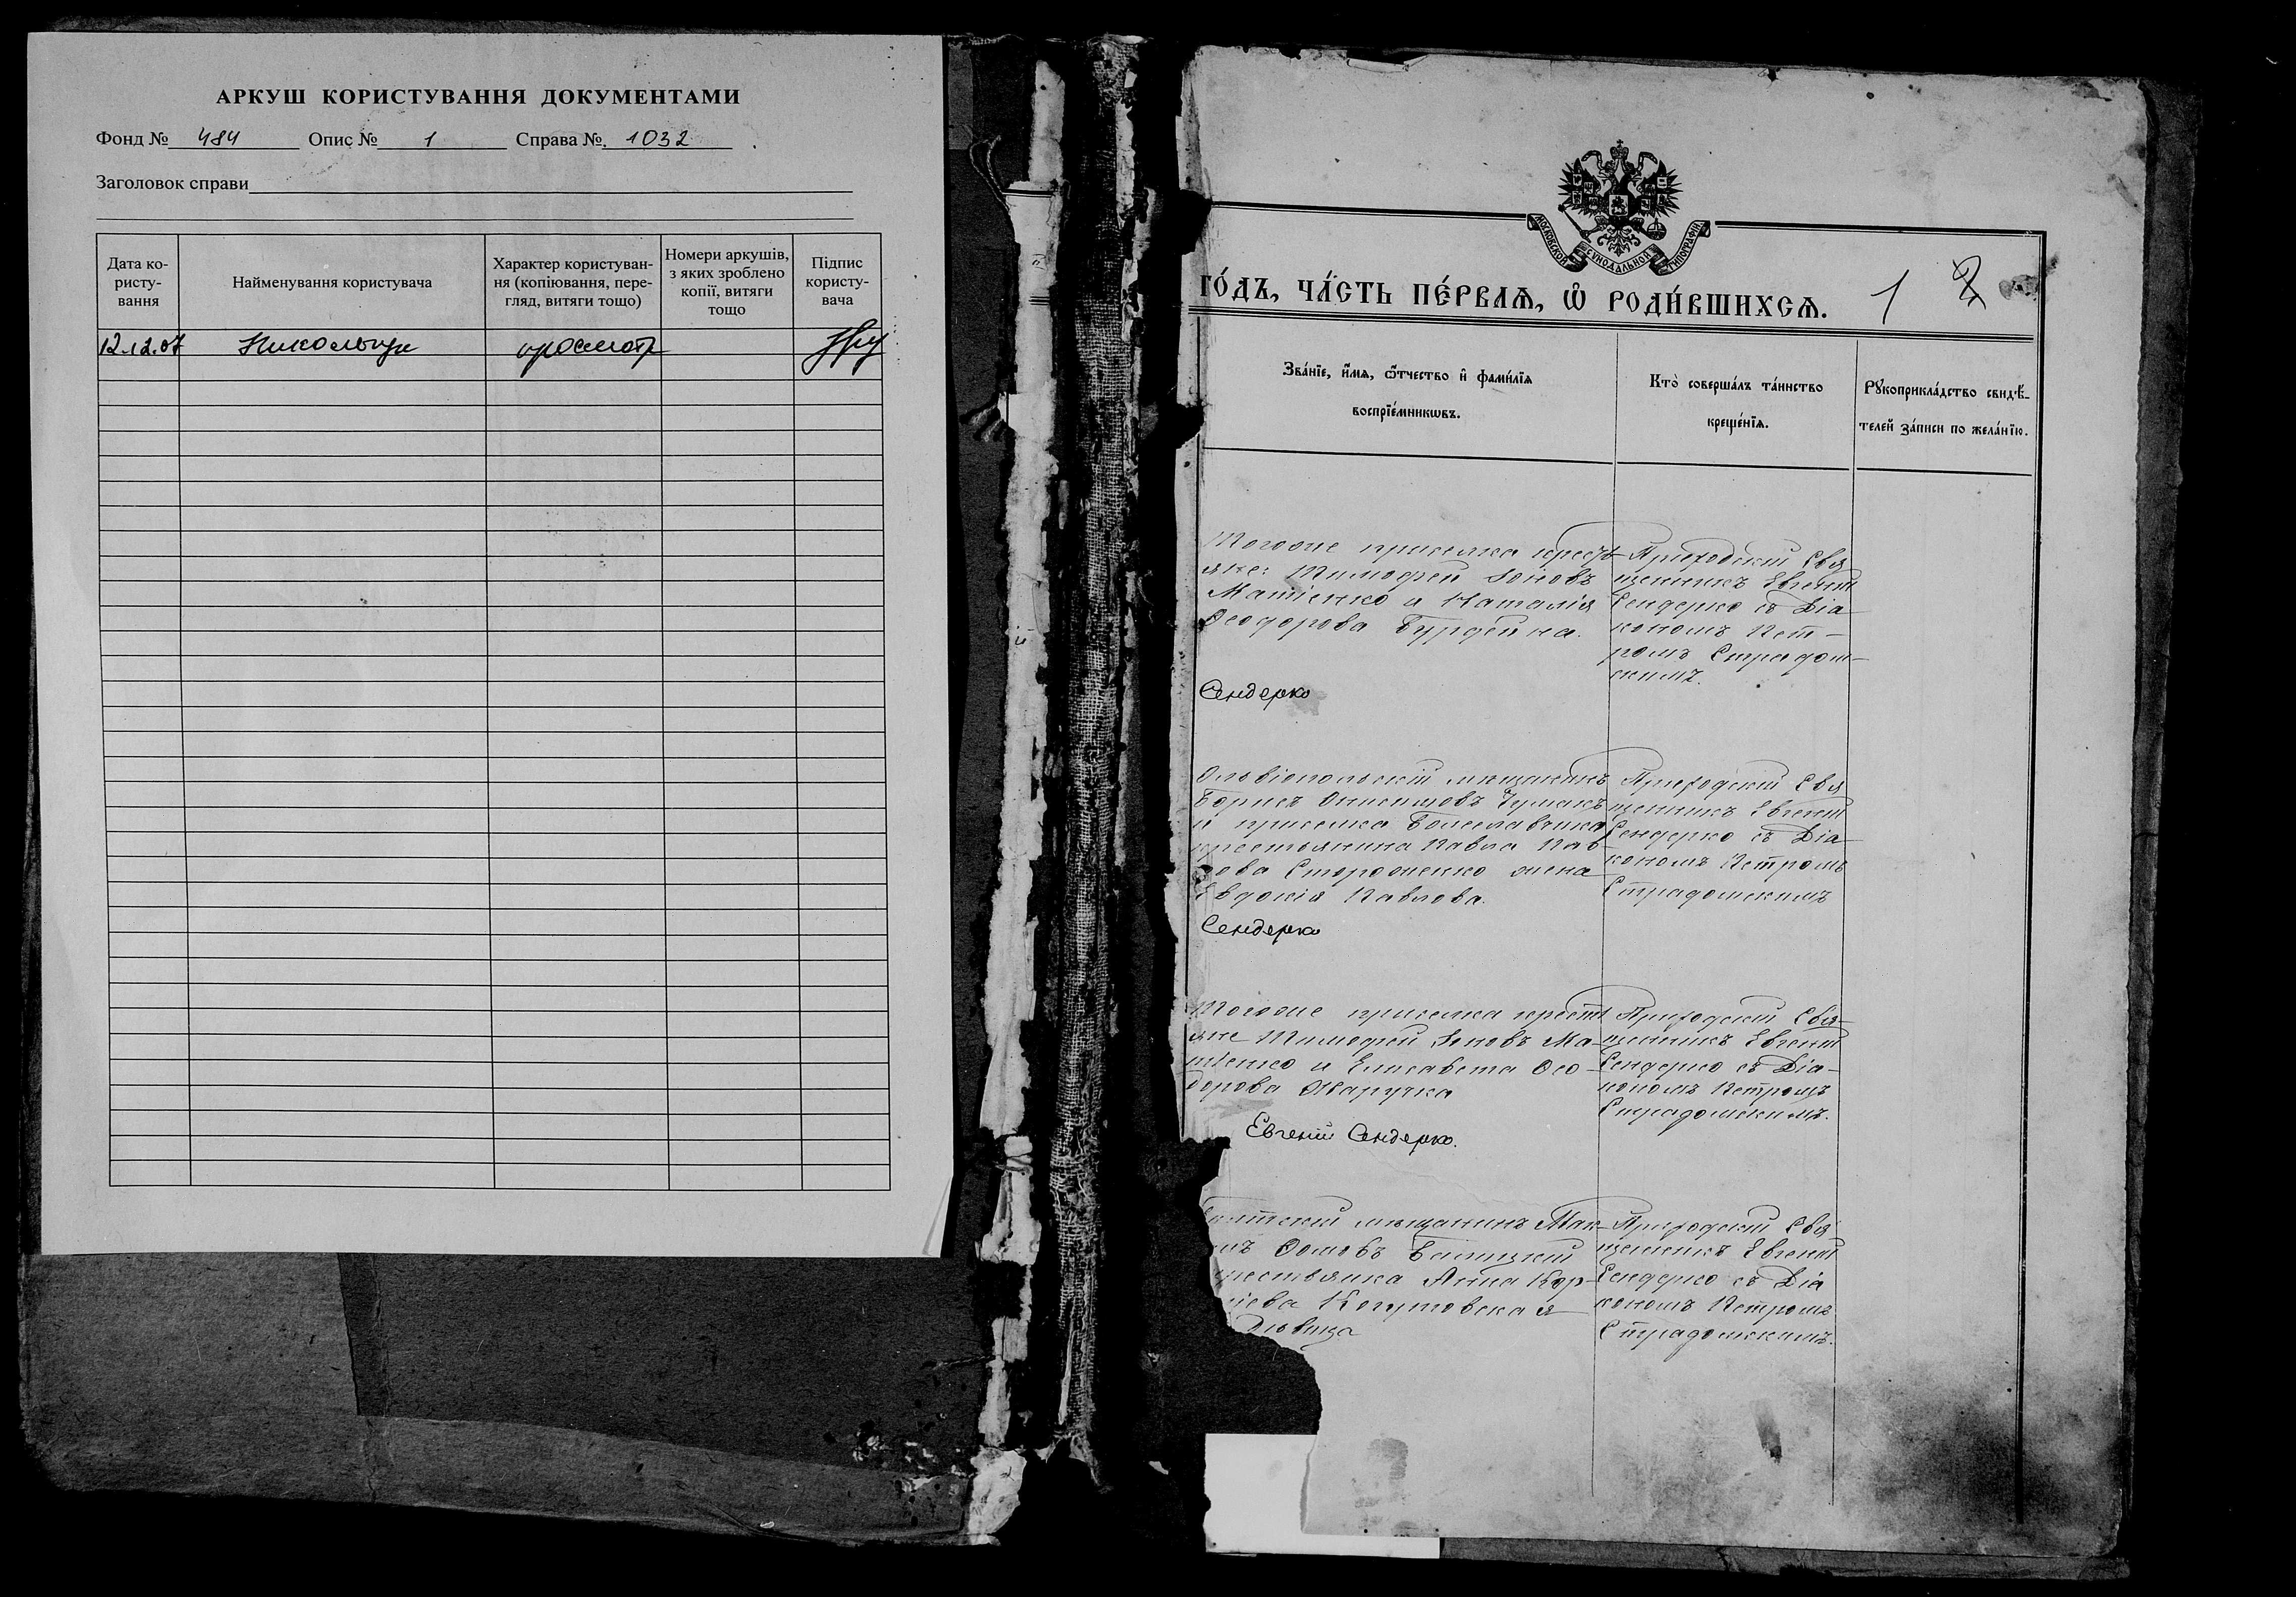 АРКУШ КОРИСТУВАННЯ ДОКУМЕНТАМИ
Фонд № 484 Опис № 1 Справа №. 1032
Заголовок справи
Дата ко-
ристу-
вання
Найменування користувача
Характер користуван-
ня (копіювання, пере-
гляд, витяги тощо)
Номери аркушів,
з яких зроблено
копії, витяги
тощо
Підпис
користу-
вача
12.12.07 просмотр
МОСКОВСКОЙ СѴНОДАЛЬНОЙ ТИПОГРАФІИ
ГО́ДЪ, ЧА́СТЬ ПЕ́РВАѦ, Ѽ РОДИ́ВШИХСѦ. 1 2
Зва́нїе, и҆́мѧ, ѻ҆́тчество и҆ фами́лїѧ
воспрїе́мникѡвъ.
Кто̀ соверша́лъ та́инство
креще́нїѧ.
Рꙋкоприкла́дство свидѣ́-
телей за́писи по жела́нїю.
Тогоже приселка крест-
яне: Тимофей Іоновъ
Матіенко и Наталія
Ѳеодорова Бурдейна.
Сендерко
Приходскій Свя
щенникъ Евгеній
Сендерко съ Діа-
кономъ Пет-
ромъ Страдом-
скимъ.
Ольвіопольскій мѣщанинъ
Борисъ Онисимовъ Чумакъ
и приселка Болеславчика
крестьянина Павла
Стороженко жена
Евдокія Павлова.
Сендерко
Приходскій Свя
щенникъ Евгеній
Сендерко съ Діа-
кономъ Петромъ
Страдомскимъ
Тогоже приселка крестъ
яне Тимофей Іоновъ Ма-
тіенко и Елисавета Ѳео-
дорова
Евгеній Сендерко.
Приходскій Свя-
щенникъ Евгеній
Сендерко съ Діа-
кономъ Петромъ
Страдомскимъ.
мѣщанинъ Мак-
Ѳомовъ Балицкій
крестьянка Анна Кор-
Когутовская
Дѣвица
Приходскій Свя
щенникъ Евгеній
Сендерко съ Діа
кономъ Петромъ
Страдомскимъ.